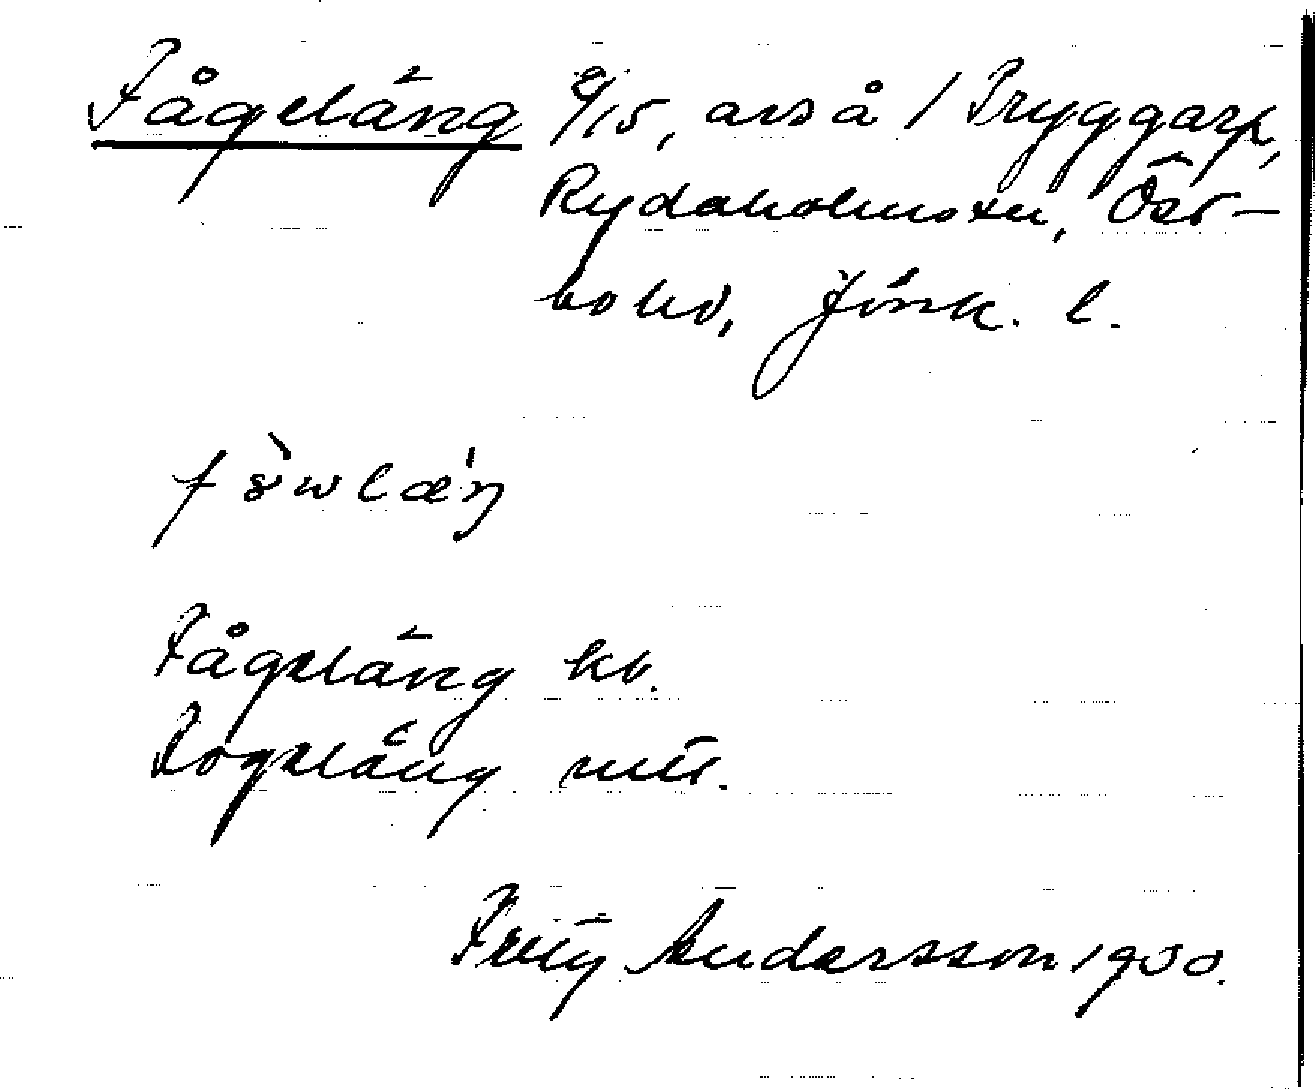 Fågeläng 9/15, avs å 1 Tryggarp,
Rydaholms sn, Öst-
bo hd, Jönk. l.
Fågeläng kb.
Fogeläng mtl.
Andersson 1930.